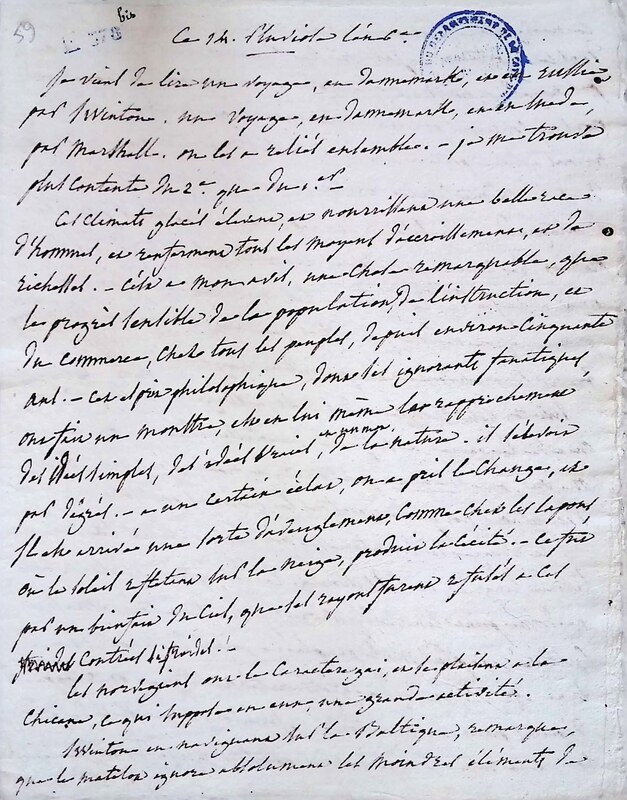 59
bis
378
Ce 14. Pluviose l'an 6e
je vient de lire un voyage, en dannemark, et en russie
par Swinton. un voyage, en dannemark, et en suede,
par Marshall. on les a reliés ensemble. - je me trouve
plus contente du 2e que du 1er. -
Ces climats glacés élevent, et nourrissent une belle race
d'hommes, et renferment tous les moyens d'accroissement, et de
richesses. - C'est a mon avis, une chose remarquable, que
le progrès sensible de la population, de l'instruction, et
du commerce, chez tous les peuples, depuis environ cinquante
ans. - cet esprit philosophique, dont les ignorants fanatiques
ont fait un monstre, est en lui même le rapprochement
des idées simples, des idées vraies, en un mot, de la nature. il s'élevoit
par dégrés. - a un certain éclat, on a pris le change, et
il est arrivé une sorte d'aveuglement, comme chez les lapons
où le soleil reflettant sur la neige, produit la cécité. - Ce fut
par un bienfait du Ciel, que les rayons furent refusés a ces
contrées si froides. -
les norvegiens ont le caractere gai, et se plaisent a la
chicane, ce qui suppose en eux, une grande activité.
Swinton en naviguant sur la Baltique, remarque,
que le matelot ignore absolument les moindres éléments de